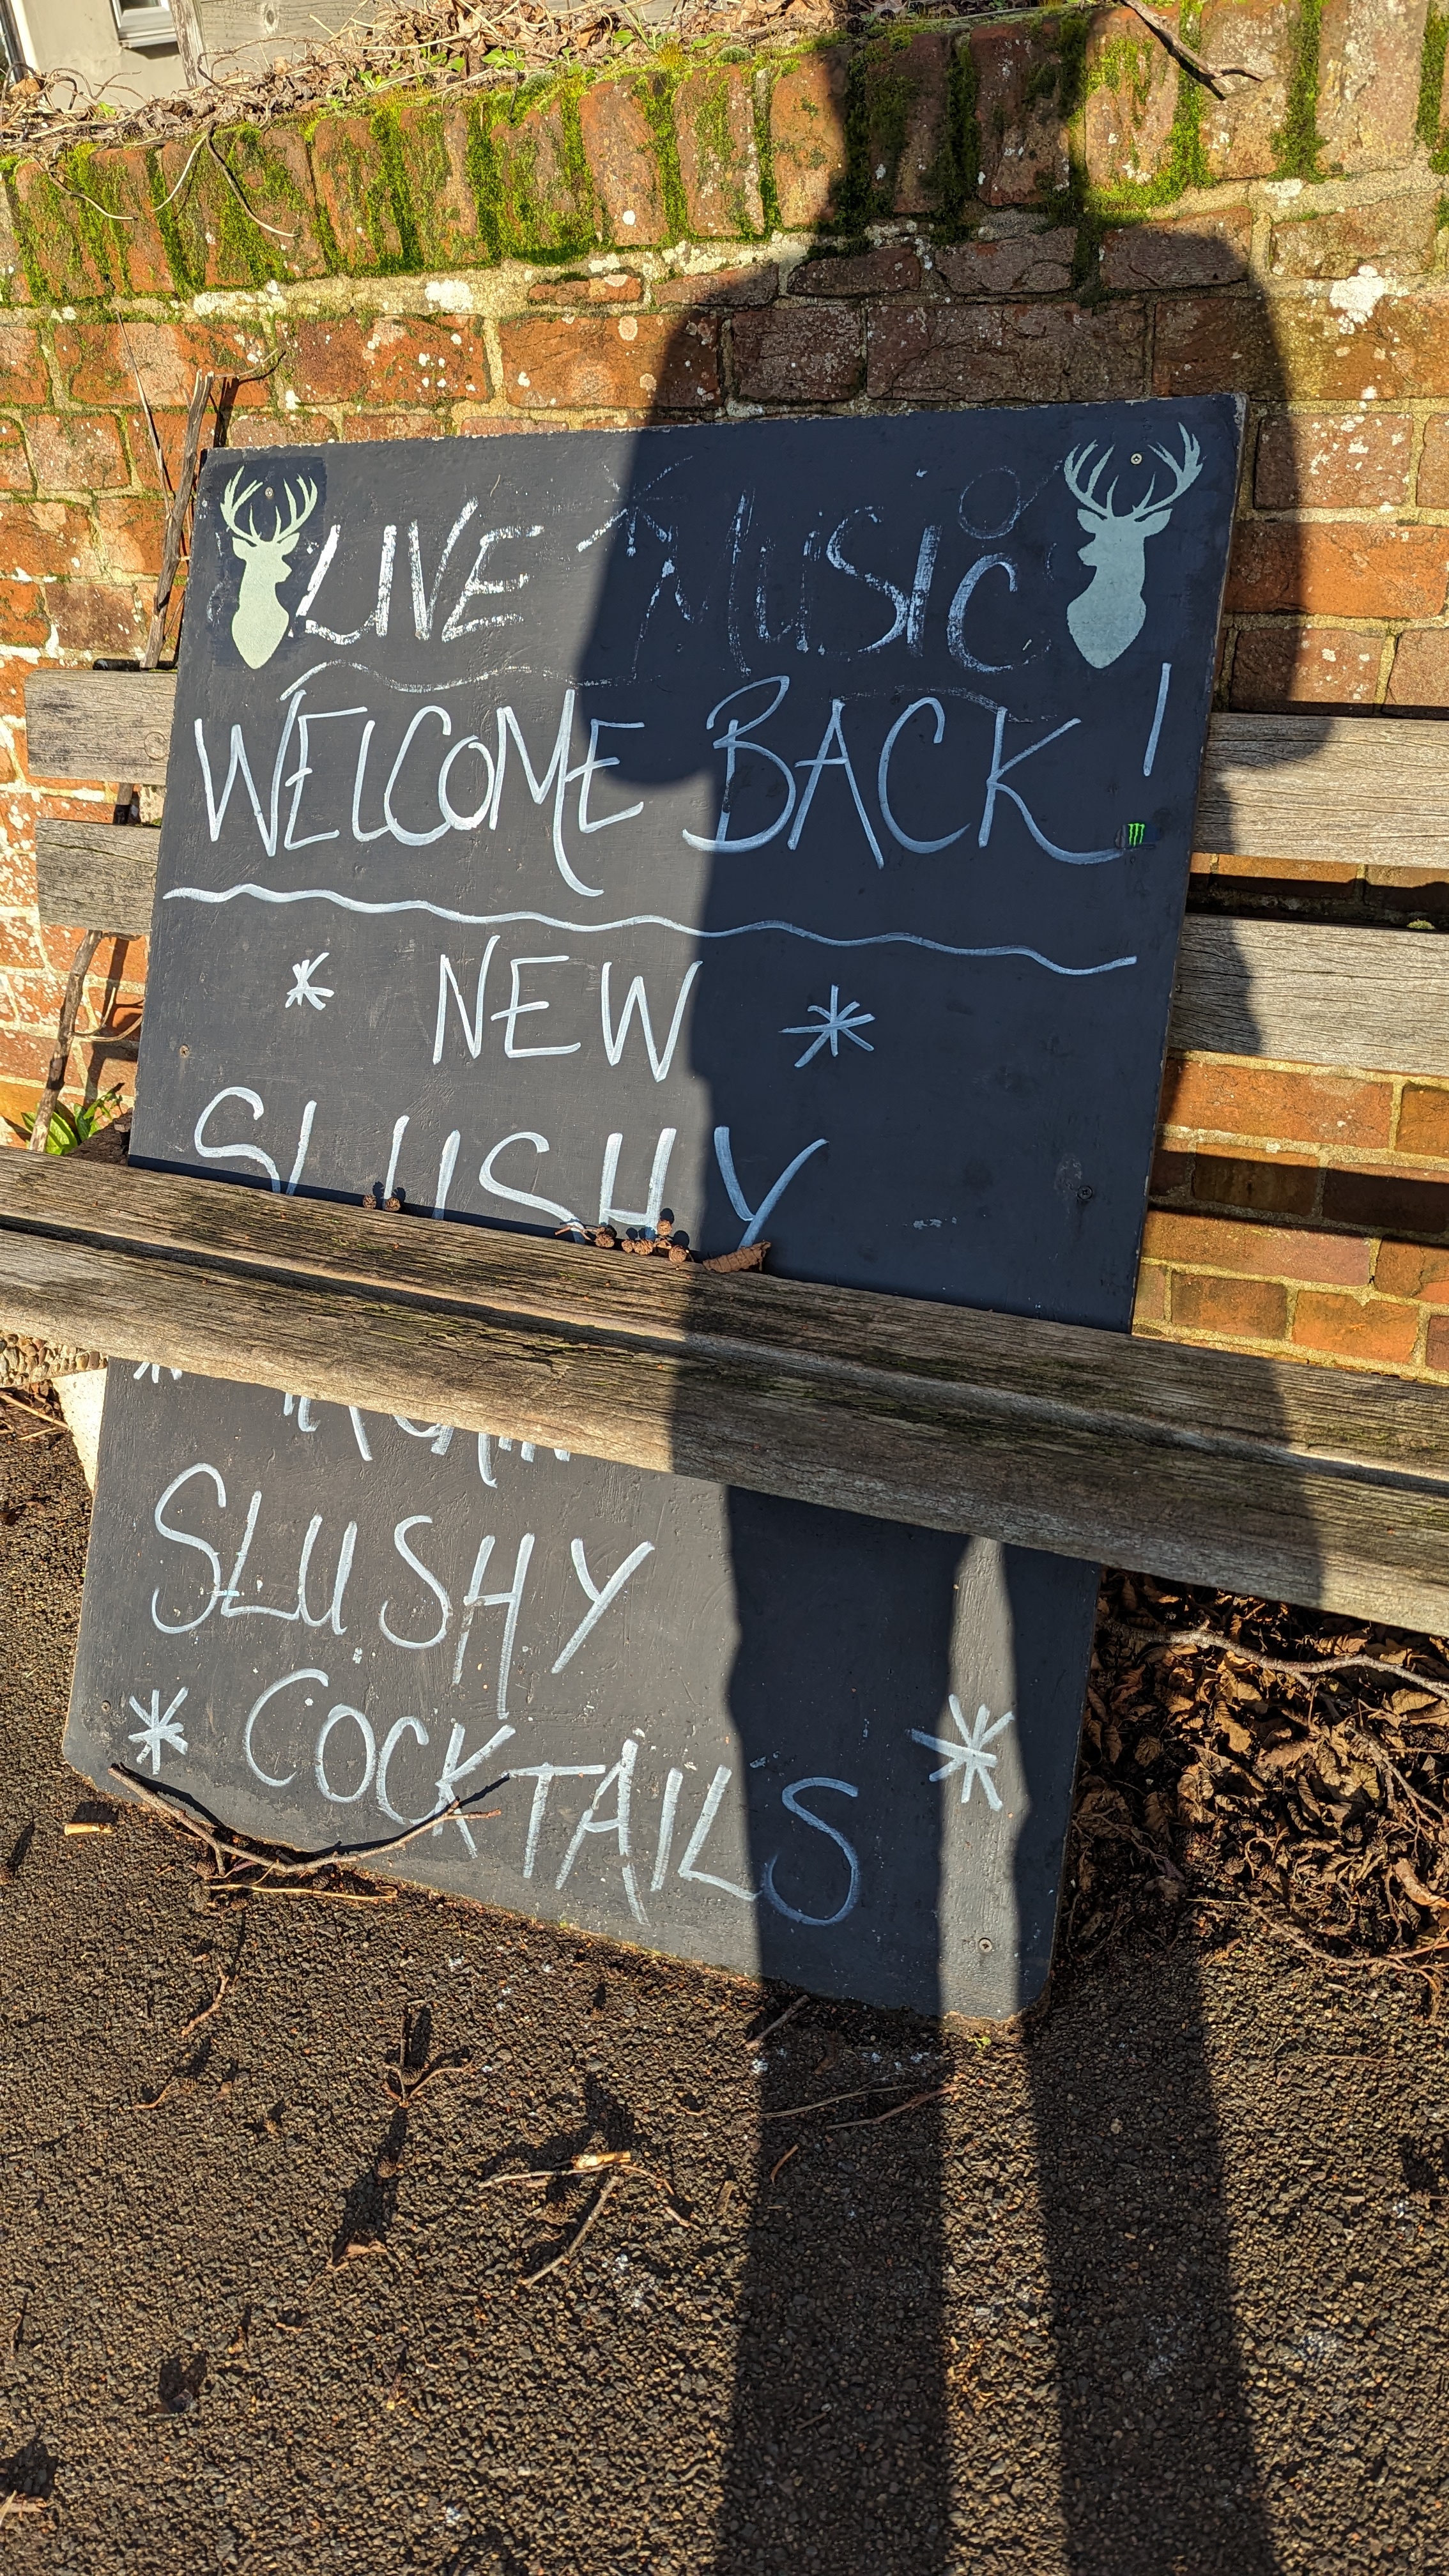 LIVE MUSIC
WELCOME BACK!
* NEW *
SLUSHY
SLUSHY
* COCKTAILS *